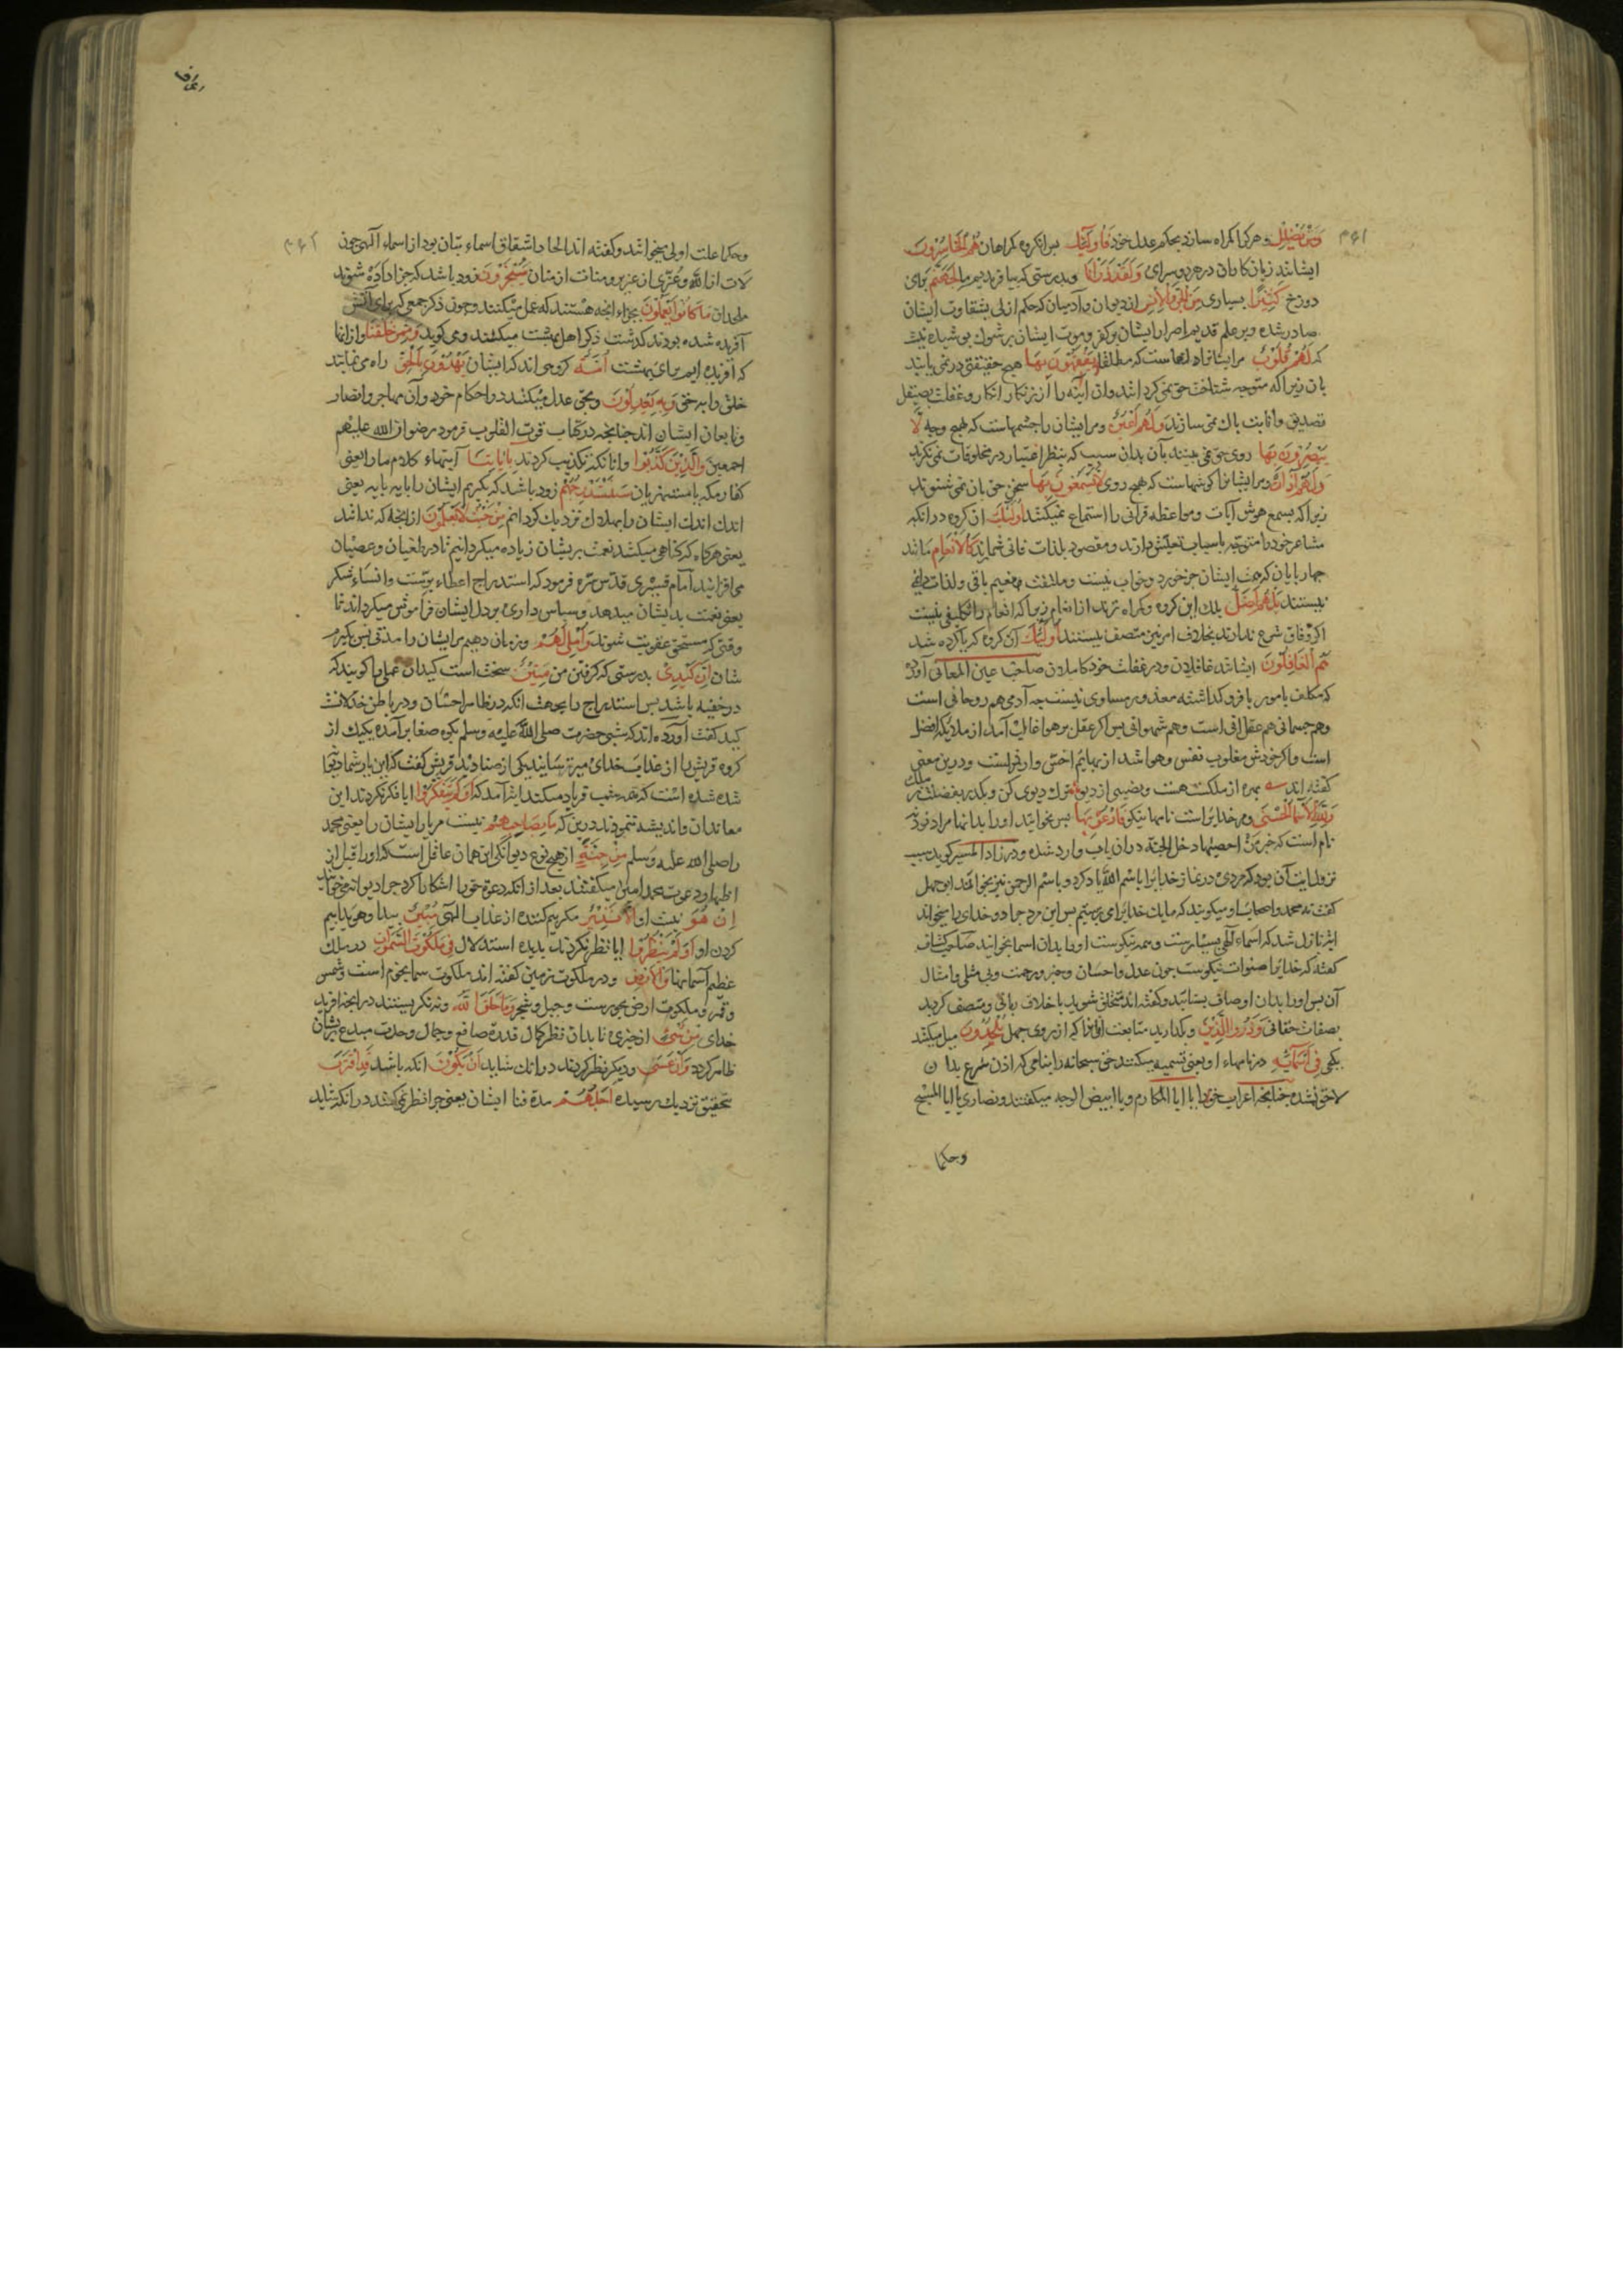 ۳۶۱
وَمَنْ يُضْلِلْ و هر کرا کمراه سازد بحکم عدل خود فَأُولَئِكَ پس انکروه کمراهان هُمُ الْخَاسِرُونَ
ایشانند زیان کاران در هر دو سرای وَلَقَدْ ذَرَأْنَا وبدرستی که بیافریدیم ما لِجَهَنَّمَ برای
دوزخ كَثِيرًا بسیاری مِنَ الْجِنِّ وَالْإِنْسِ از دیوان و آدمیان که حکم ازلی بشقاوت ایشان
صادر شده و بر علم قدیم اصرار ایشان بر کفر و موت ایشان بر شرك پوشیده نیست
که لَهُمْ قُلُوبٌ مر ایشانرا دلهاست که مطلقا لَا يَفْقَهُونَ بِهَا هیچ حقیقتی در نمی یابند
بان زیرا که متوجه شناخت حق نمی کردانند وان آینه را از زنکار انکار و غفلت بصیقل
تصدیق وانابت باك نمی سازند وَلَهُمْ أَعْيُنٌ ومر ایشان را چشمهاست که بهیچ وجه لَا
يُبْصِرُونَ بِهَا روی حق نمی بینند بآن بدان سبب که بنظر اعتبار در مخلوقات نمی نکرند
وَلَهُمْ آذَانٌ ومر ایشانرا کوشهاست که هیچ روی لَا يَسْمَعُونَ بِهَا سخن حق بان نمی شنوند
زیرا که بسمع هوش آیات و مواعظ قرآنی را استماع نمیکنند أُولَئِكَ ان کروه در انکه
مشاعر خود را متوجه باسباب تعیش دارند و مقصود بلذات فانی شمارند كَالْأَنْعَامِ مانند
چهاربایان که همت ایشان جز خورد و خواب نیست وملتفت نعیم باقی و لذات دایمی
نیستند بَلْ هُمْ أَضَلُّ بلك این کروه کمراه ترند از انعام زیرا که انعام را تکلیفی نیست
اکر وفاق شرع ندارند بخلاف امر نیز متصف نیستند أُولَئِكَ آن کروه که یاد کرده شد
هُمُ الْغَافِلُونَ ایشانند غافلان ودر غفلت خود کاملان صاحب عین المعانی آورده
که مکلف مامور با فرو کذاشته معذور مساوی نیست چه آدمی هم روحانی است
وهم جسمانی هم عقلانی است وهم شهوانی پس اکر عقل بر هوا غالب آمد از ملایکه افضل
است واکر خودش مغلوب نفس وهوا شد از بهایم اخس وارذلست ودرین معنی
کفته اند بهره از ملکت هست ونصیبی از دیو ترك دیوی کن وبکذر بفضیلت ز ملك
وَلِلَّهِ الْأَسْمَاءُ الْحُسْنَى ومر خدایراست نامهاء نیکو فَادْعُوهُ بِهَا پس بخوانید اورا بدانها مراد نود نه
نام است که خبر من احصیها دخل الجنة دران باب وارد شده ودر زاد المسیر کوید سبب
نزول این آیت آن بود که مردی در نماز خدایرا باسم الله یاد کرد و باسم الرحمن نیز بخواند ابوجهل
کفت نه محمد واصحاب او میکویند که ما یك خدایرا می پرستیم پس این مرد چرا دو خدای را میخواند
ایة نازل شد که اسماء الهی بسیارست وهمه نیکوست اورا بدان اسما بخوانید صاحب کشاف
کفته که خدایرا صفات نیکوست چون عدل واحسان وخیر ورحمت وبی مثلی وامثال
آن پس اورا بدان اوصاف بستائید وکفته اند متخلق شوید باخلاق ربانی ومتصف کردید
بصفات حقانی وَذَرُوا الَّذِينَ وبکذارید متابعت انانرا که از روی جهل يُلْحِدُونَ میل میکنند
بکجی فِي أَسْمَائِهِ در نامهاء او یعنی تسمیه میکنند حق سبحانه را بنامی که اذن شرع بدان
لاحق نشده چنانچه اعراب حق را یا ابا المکارم ویا ابیض الوجه میکفتند ونصاری یا ابا المسیح
وحکما
۳۶۲
وحکما علت اولی میخوانند وکفته اند الحاد اشتقاق اسماء بتان بود از اسماء الهی چون
لات از الله وعزی از عزیز ومنات از منان سَيُجْزَوْنَ زود باشد که جزا داده شوند
ملحدان مَا كَانُوا يَعْمَلُونَ بجزاء انچه هستند که عمل میکنند وچون ذکر جمعی که برای آتش
آفریده شده بودند کذشت ذکر اهل بهشت میکند ومی کوید وَمِمَّنْ خَلَقْنَا واز انها
که آفریده ایم برای بهشت أُمَّةٌ کروهی اند که ایشان يَهْدُونَ بِالْحَقِّ راه می نمایند
خلق را به حق وَبِهِ يَعْدِلُونَ وبحق عدل میکنند در احکام خود وآن مهاجر وانصار
وتابعان ایشان اند چنانچه در کتاب قوت القلوب فرمود رضوان الله علیهم
اجمعین وَالَّذِينَ كَذَّبُوا وانانکه تکذیب کردند بِآيَاتِنَا آیتهاء کلام مارا یعنی
کفار مکه یا مستهزیان سَنَسْتَدْرِجُهُمْ زود باشد که بکیریم ایشان را پایه پایه یعنی
اندك اندك ایشان را بهلاك نزدیك کردانم مِنْ حَيْثُ لَا يَعْلَمُونَ از انجا که ندانند
یعنی هرکاه که کناهی میکنند نعمت بریشان زیاده میکردانیم تا در طغیان وعصیان
می افزایند امام قشیری قدس سره فرمود که استدراج اعطاء برّست وانساء شکر
یعنی نعمت بدیشان میدهد وسپاس داری بر دل ایشان فراموش میکرداند تا
وقتی که مستحق عقوبت شوند وَأُمْلِي لَهُمْ وزمان دهیم مر ایشان را مدتی پس بکیرم
شان إِنَّ كَيْدِي بدرستی که کرفتن من مَتِينٌ سخت است کید ان عملی را کویند که
در خفیه باشد پس استدراج را بجهت انکه در ظاهر احسان ودر باطن خذلانست
کید کفت آورده اند که شبی حضرت صلی الله علیه وسلم بکوه صفا بر آمده یك یك از
کروه قریش را از عذاب خدای میترسانید یکی از صنادید قریش کفت که این یار شما دیوانه
شده است که همه شب فریاد میکند ایة آمد که أَوَلَمْ يَتَفَكَّرُوا ایا فکر نکردند این
معاندان واندیشه ننمودند درین که مَا بِصَاحِبِهِمْ نیست مر یار ایشان را یعنی محمد
را صلی الله علیه وسلم مِنْ جِنَّةٍ از هیچ نوع دیوانکی این همان عاقل است که اورا قبل از
اظهار دعوت محمد امین میکفتند بعد از انکه دعوة حق را اشکارا کرد چرا دیوانه میخوانید
إِنْ هُوَ نیست او إِلَّا نَذِيرٌ مکر بیم کننده از عذاب الهی مُبِينٌ پیدا وهویدا بیم
کردن او أَوَلَمْ يَنْظُرُوا ایا نظر نکردند بدیده استدلال فِي مَلَكُوتِ السَّمَاوَاتِ در ملك
عظیم آسمانها وَالْأَرْضِ ودر ملکوت زمین کفته اند ملکوت سما نجوم است وشمس
وقمر وملکوت ارض بحورست وجبل وشجر وَمَا خَلَقَ اللَّهُ ونه نکریستند در انچه افرید
خدای مِنْ شَيْءٍ از چیزی تا بدان نظر کمال قدرة صانع وجمال وحدت مبدع بریشان
ظاهر کردد وَأَنْ عَسَى ودیکر نظر کردند در انك شاید أَنْ يَكُونَ انکه باشد قَدِ اقْتَرَبَ
تحقیق نزدیك رسیده أَجَلُهُمْ مدة فنا ایشان یعنی چرا نظر نمی کنند در انکه شاید